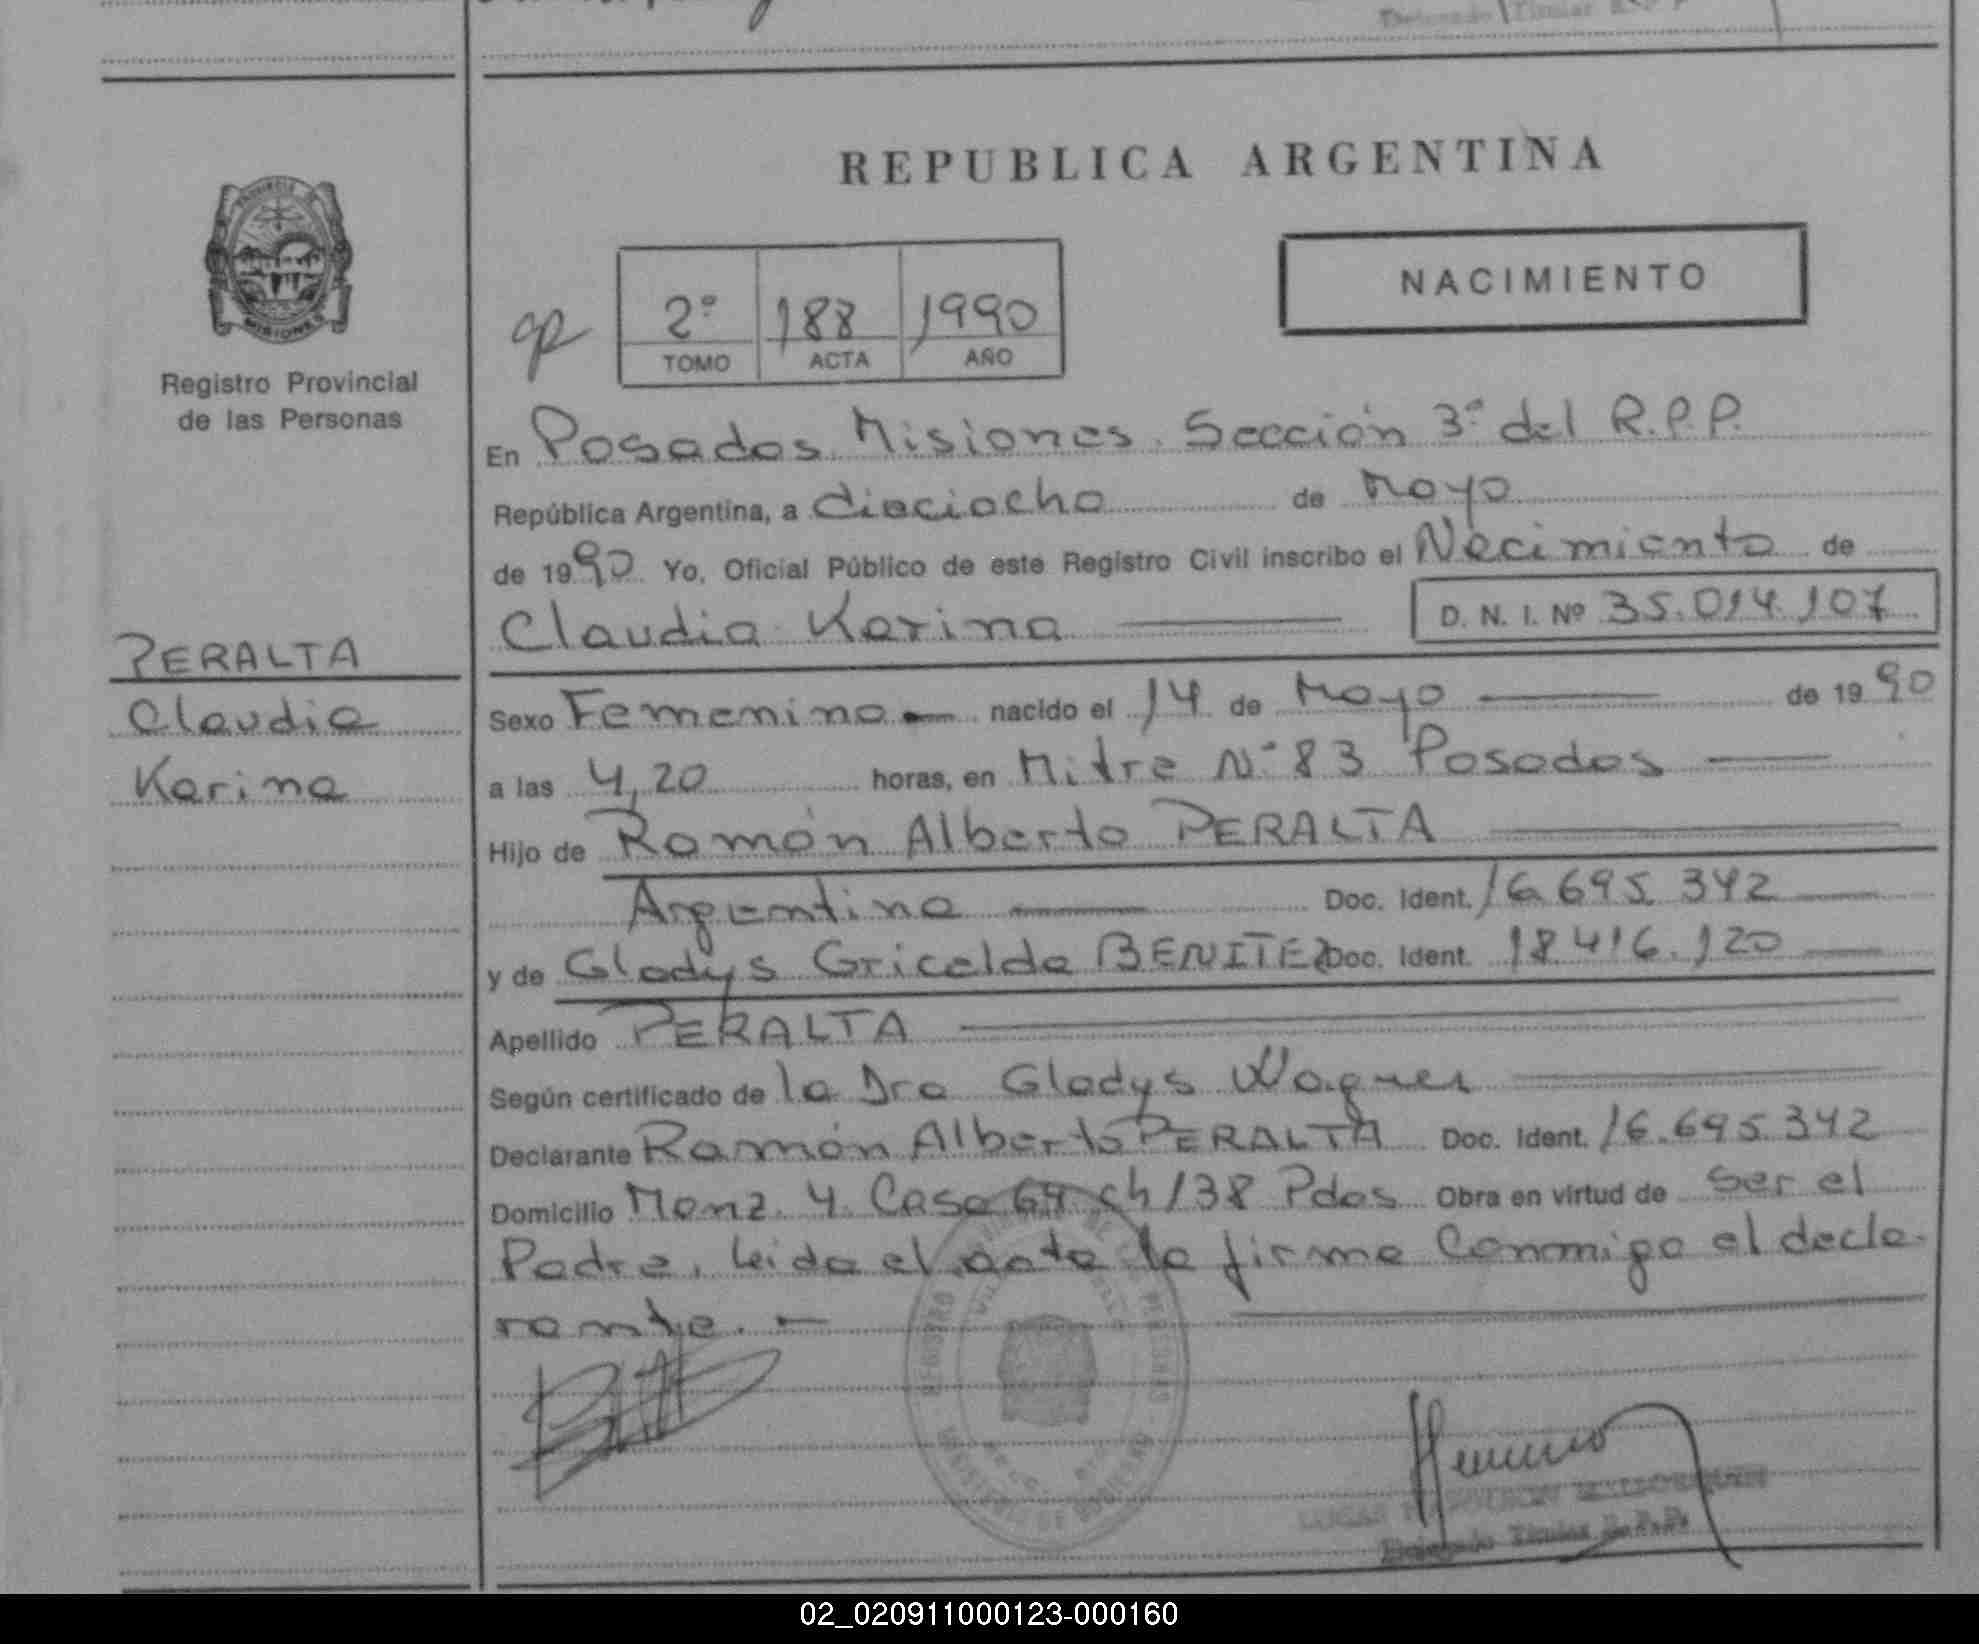 REPUBLICA ARGENTINA
NACIMIENTO
2º 188 1990
TOMO ACTA AÑO
MISIONES
Registro Provincial
de las Personas
PERALTA
Claudia
Karina
En Posadas Misiones. Sección 3ª del R.P.P.
República Argentina, a dieciocho de Mayo
de 1990. Yo, Oficial Público de este Registro Civil inscribo el Nacimiento de
Claudia Karina D. N. I. Nº 35.014.107
Sexo Femenino nacido el 14 de Mayo de 1990
a las 4,20 horas, en Mitre Nº 83 Posadas
Hijo de Ramón Alberto PERALTA
Argentino Doc. Ident. 16.695.342
y de Gladys Gricelda BENITEZ Doc. Ident. 18.416.120
Apellido PERALTA
Según certificado de la Dra Gladys Wagner
Declarante Ramón Alberto PERALTA Doc. Ident. 16.695.342
Domicilio Manz. 4. Casa 64 ch/38 Pdas Obra en virtud de ser el
Padre, leida el acta la firma Conmigo el decla-
rante. -
Titular R.P.P.
02_020911000123-000160